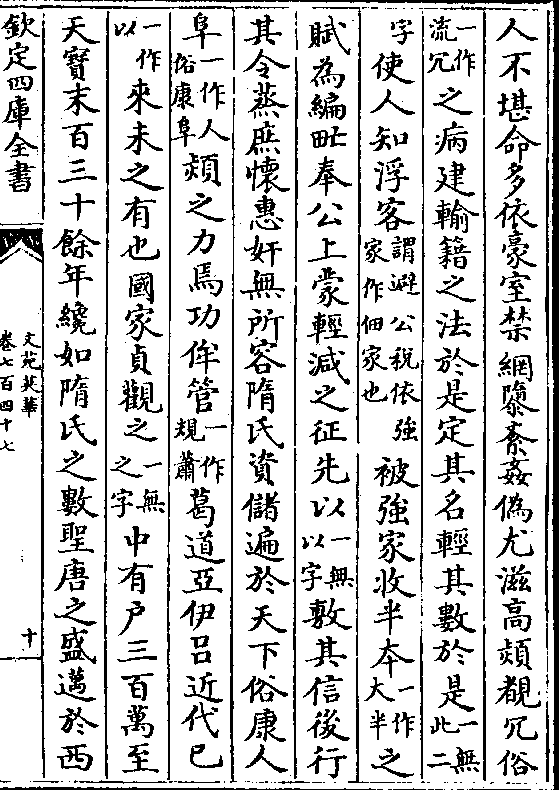 人不堪命多依豪室禁網隳紊姦偽尤滋高熲覩冗俗
一作流冗之病建輸籍之法於是定其名輕其數於是一無此二
字使人知浮客謂避公税依強家作佃家也被強家收半本一作大半之
賦為編甿奉公上蒙輕減之征先以一無以字敷其信後行
其令蒸庶懷惠奸無所容隋氏資儲遍於天下俗康人
阜一作人俗康阜熲之力焉功侔管一作規蕭葛道亞伊吕近代已
一作以來未之有也國家貞觀之一無之字中有户三百萬至
天寶末百三十餘年纔如隋氏之數聖唐之盛邁於西
欽定四庫全書
文苑英華
卷七百四十七
十